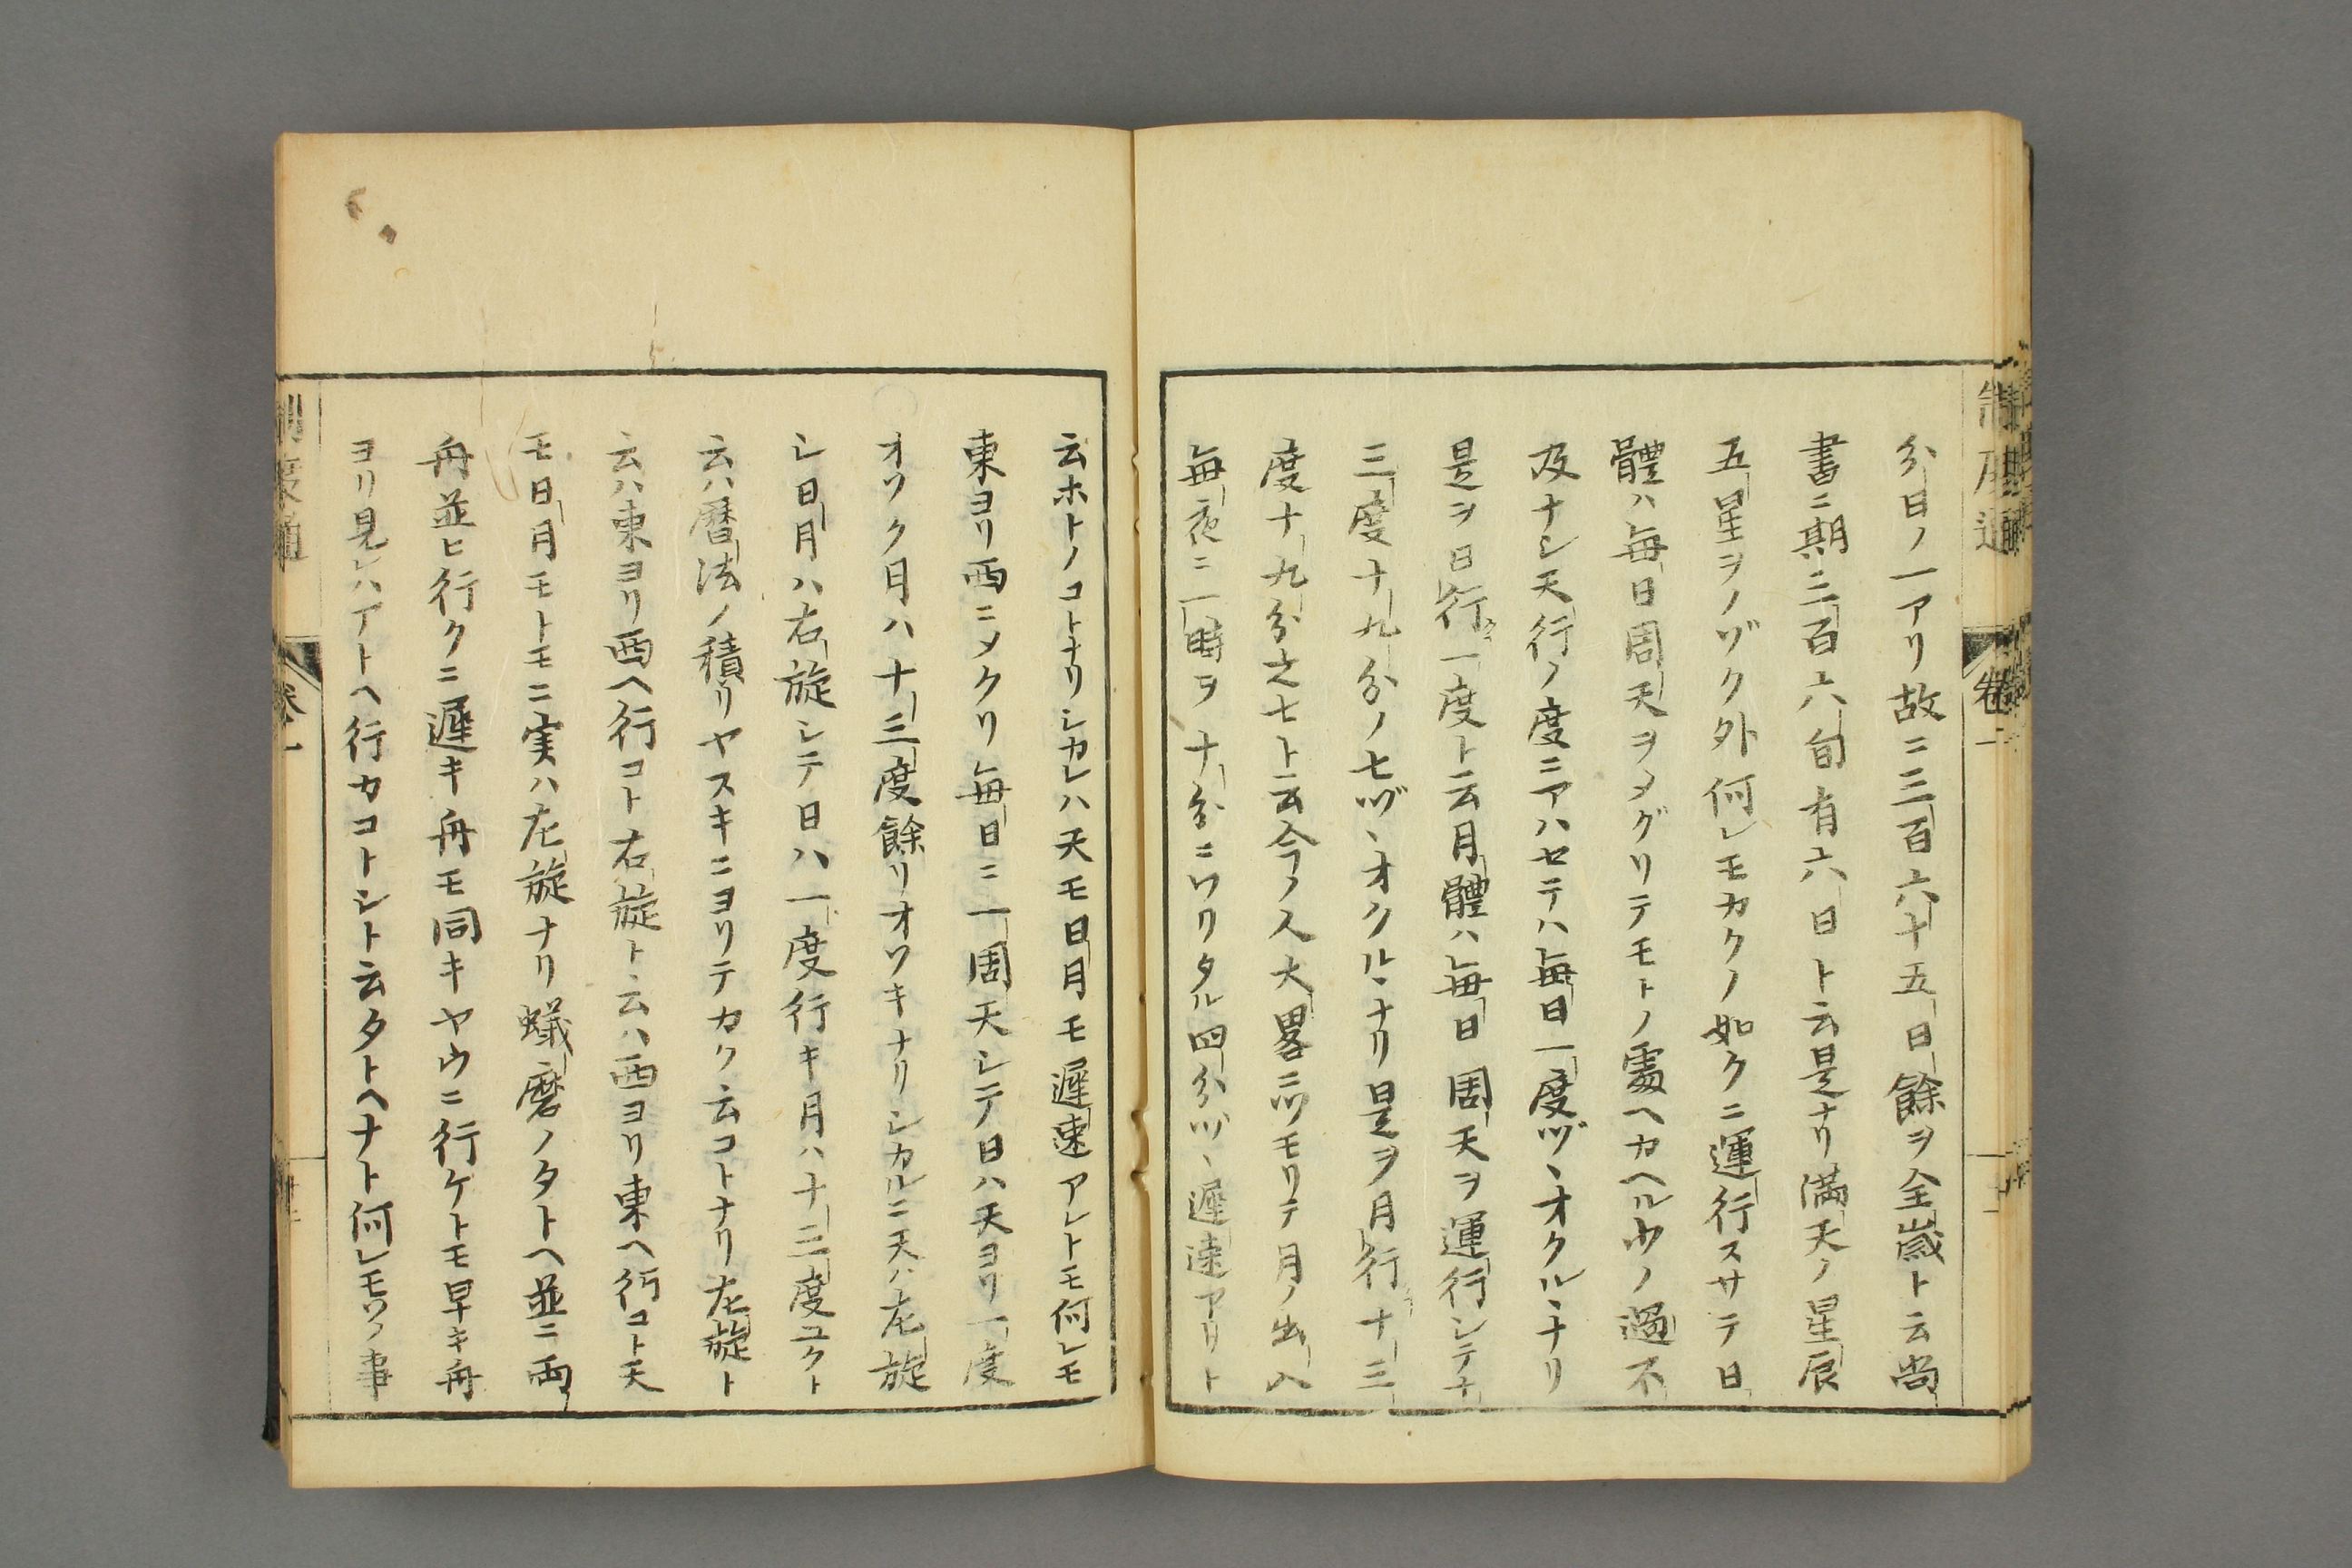 制度通
卷一
分日ノ一アリ故ニ三百六十五日餘ヲ全歳ト云尚
書ニ期三百六旬有六日ト云是ナリ満天ノ星辰
五星ヲノゾク外何レモカクノ如クニ運行スサテ日
體ハ毎日周天ヲメグリテモトノ處ヘカヘル少ノ過不
及ナシ天行ノ度ニアハセテハ毎日一度ヅヽオクルヽナリ
是ヲ日行一度ト云月體ハ毎日周天ヲ運行シテ十
三度十九分ノ七ヅヽオクルヽナリ是ヲ月行十三
度十九分之七ト云今ノ人大畧ニツモリテ月ノ出入
毎夜ニ一時ヲ十分ニワリタル四分ヅヽ遲速アリト
云ホトノコトナリシカレハ天モ日月モ遲速アレトモ何レモ
東ヨリ西ニメクリ毎日ニ一周天シテ日ハ天ヨリ一度
オソク月ハ十三度餘リオソキナリシカルニ天ハ左旋
シ日月ハ右旋シテ日ハ一度行キ月ハ十三度ユクト
云ハ曆法ノ積リヤスキニヨリテカク云コトナリ左旋ト
云ハ東ヨリ西ヘ行コト右旋ト云ハ西ヨリ東ヘ行コト天
モ日月モトモニ実ハ左旋ナリ蟻磨ノタトヘ並ニ両
舟並ヒ行クニ遲キ舟モ同キヤウニ行ケトモ早キ舟
ヨリ見レハアトヘ行カコトシト云タトヘナト何レモソノ事
制度通
卷一